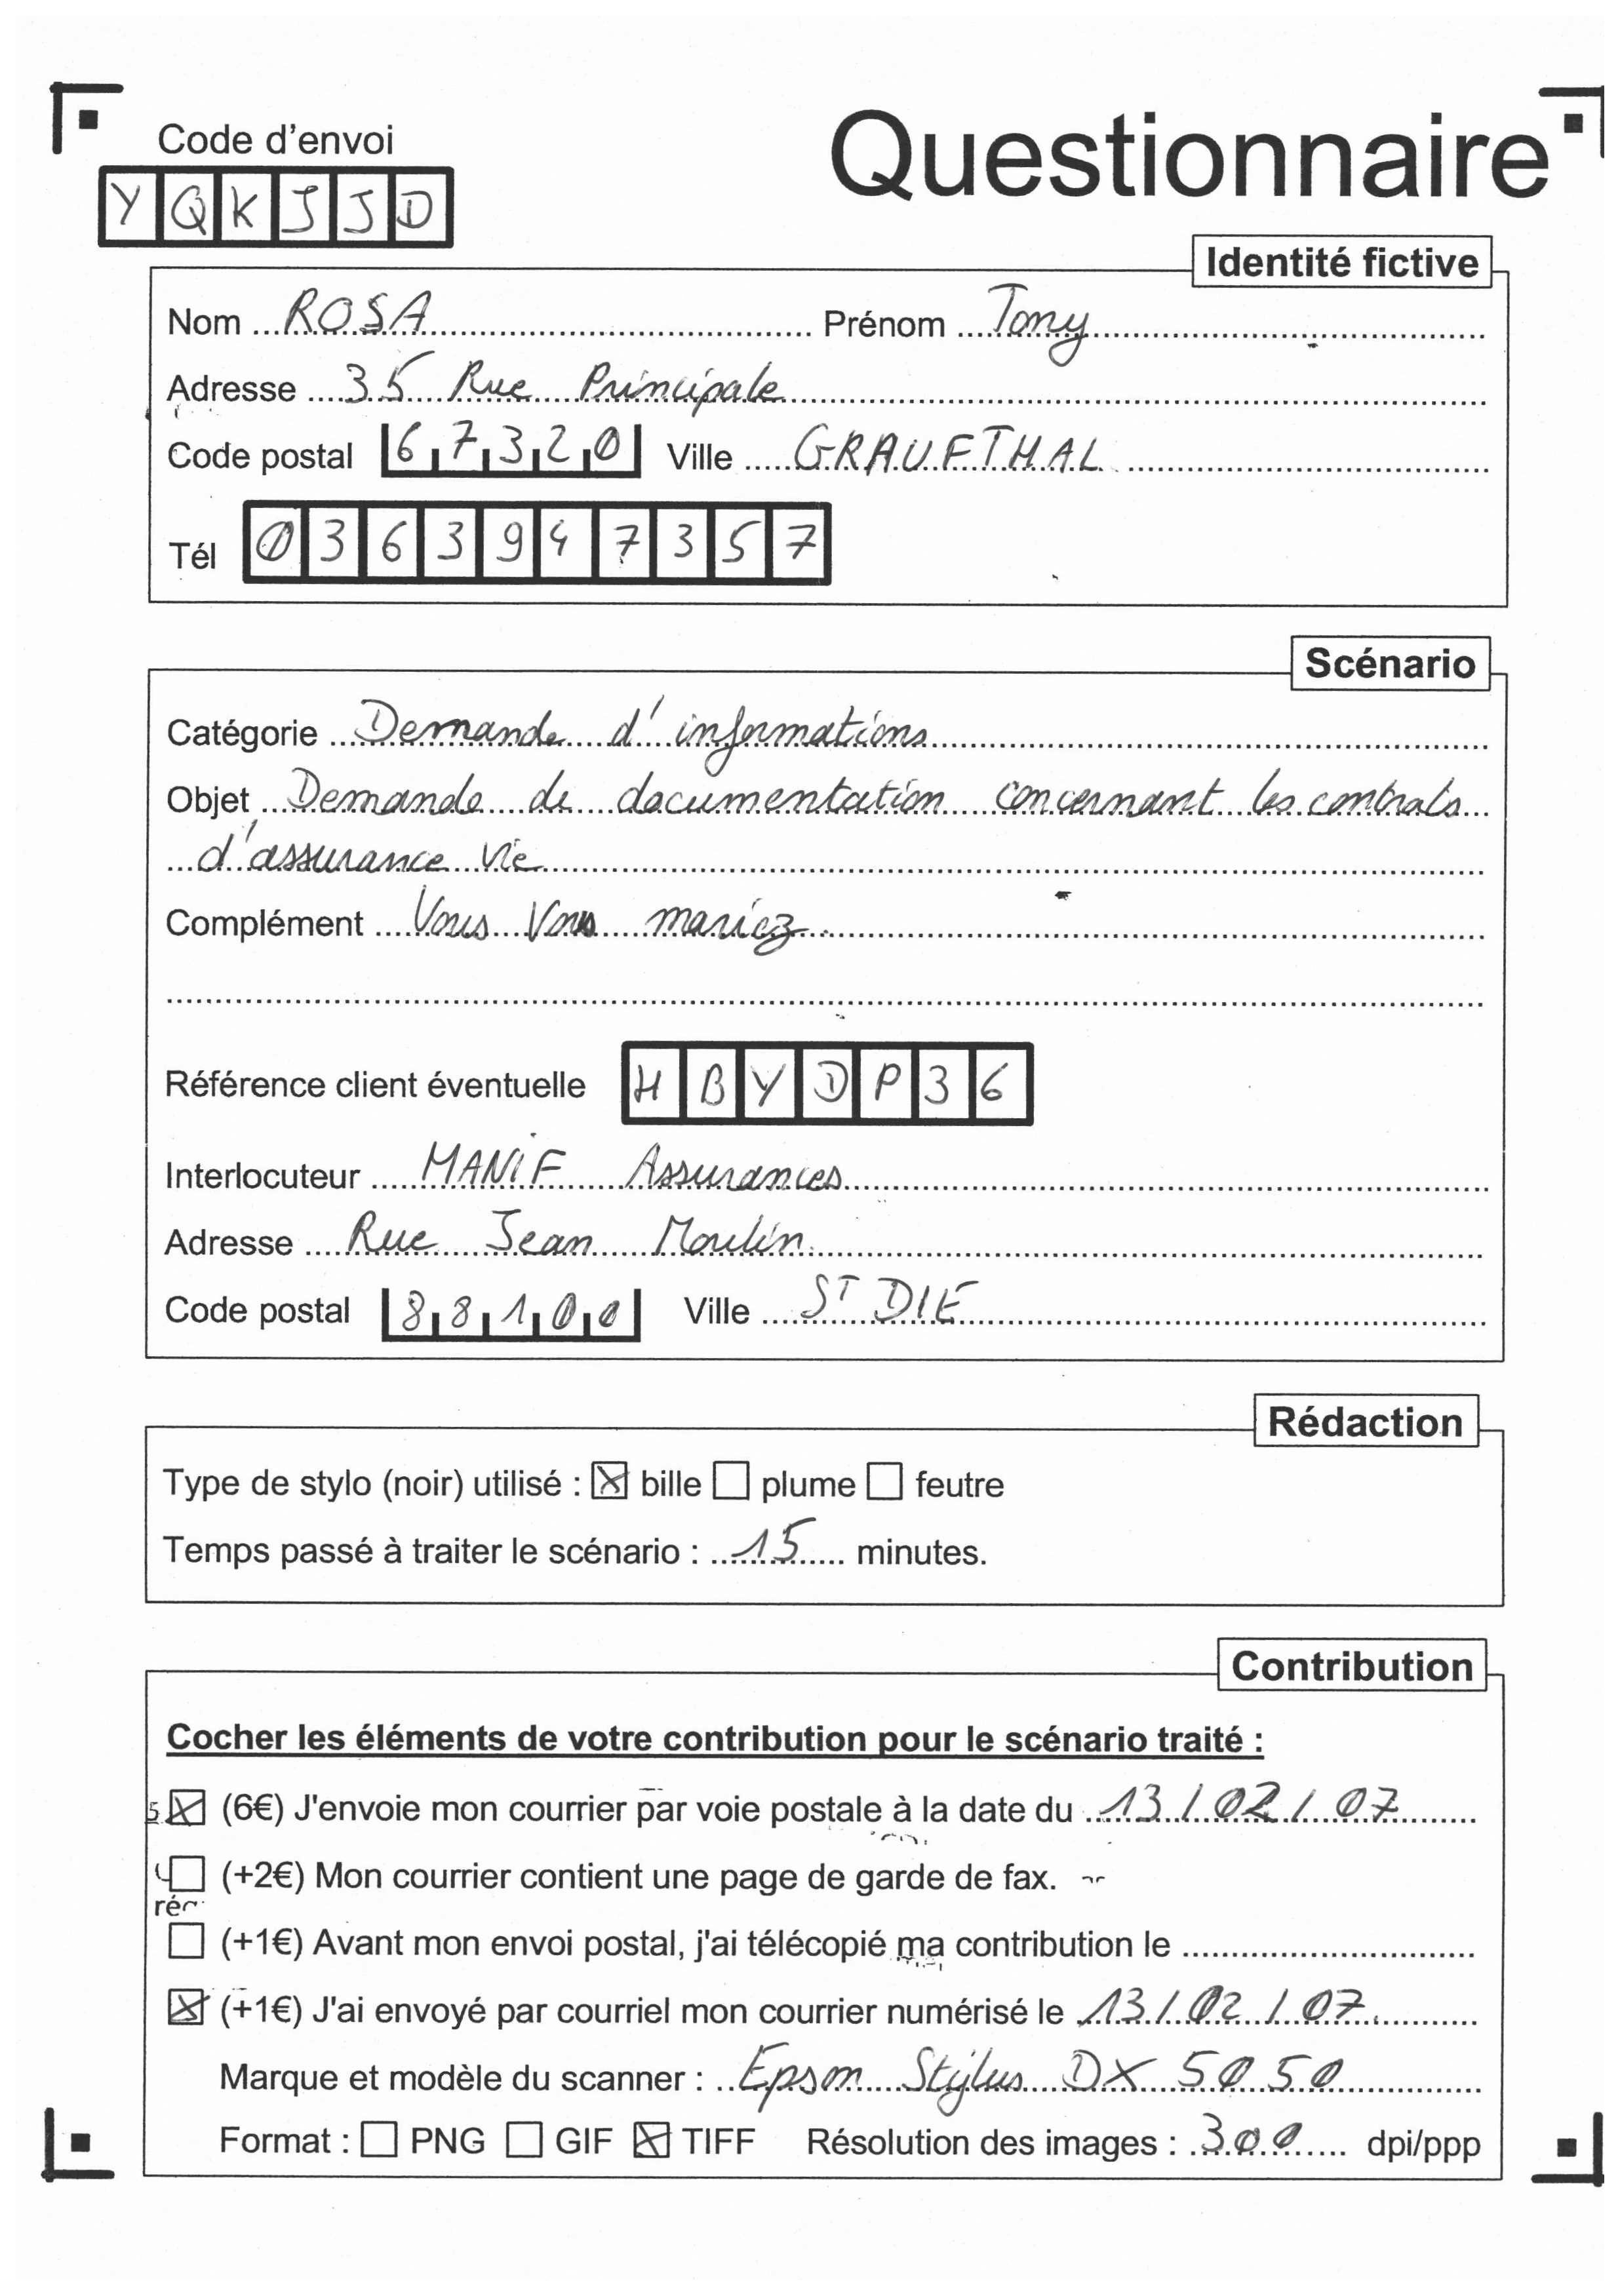 Code d'envoi
Questionnaire
YQKJJD
Identité fictive
Nom ROSA Prénom Tony
Adresse 35 Rue Principale
Code postal 67320 Ville GRAUFTHAL
Tél 0363947357
Scénario
Catégorie Demande d'informations
Objet Demande de documentation concernant les contrats
d'assurance vie
Complément Vous vous mariez.
Référence client éventuelle HBYDP36
Interlocuteur MANIF Assurances
Adresse Rue Jean Moulin
Code postal 88100 Ville ST DIE
Rédaction
Type de stylo (noir) utilisé : bille plume feutre
Temps passé à traiter le scénario : 15 minutes.
Contribution
Cocher les éléments de votre contribution pour le scénario traité :
(6€) J'envoie mon courrier par voie postale à la date du 13/02/07
(+2€) Mon courrier contient une page de garde de fax.
(+1€) Avant mon envoi postal, j'ai télécopié ma contribution le
(+1€) J'ai envoyé par courriel mon courrier numérisé le 13/02/07.
Marque et modèle du scanner : Epson Stylus DX 5050
Format : PNG GIF TIFF Résolution des images : 300 dpi/ppp